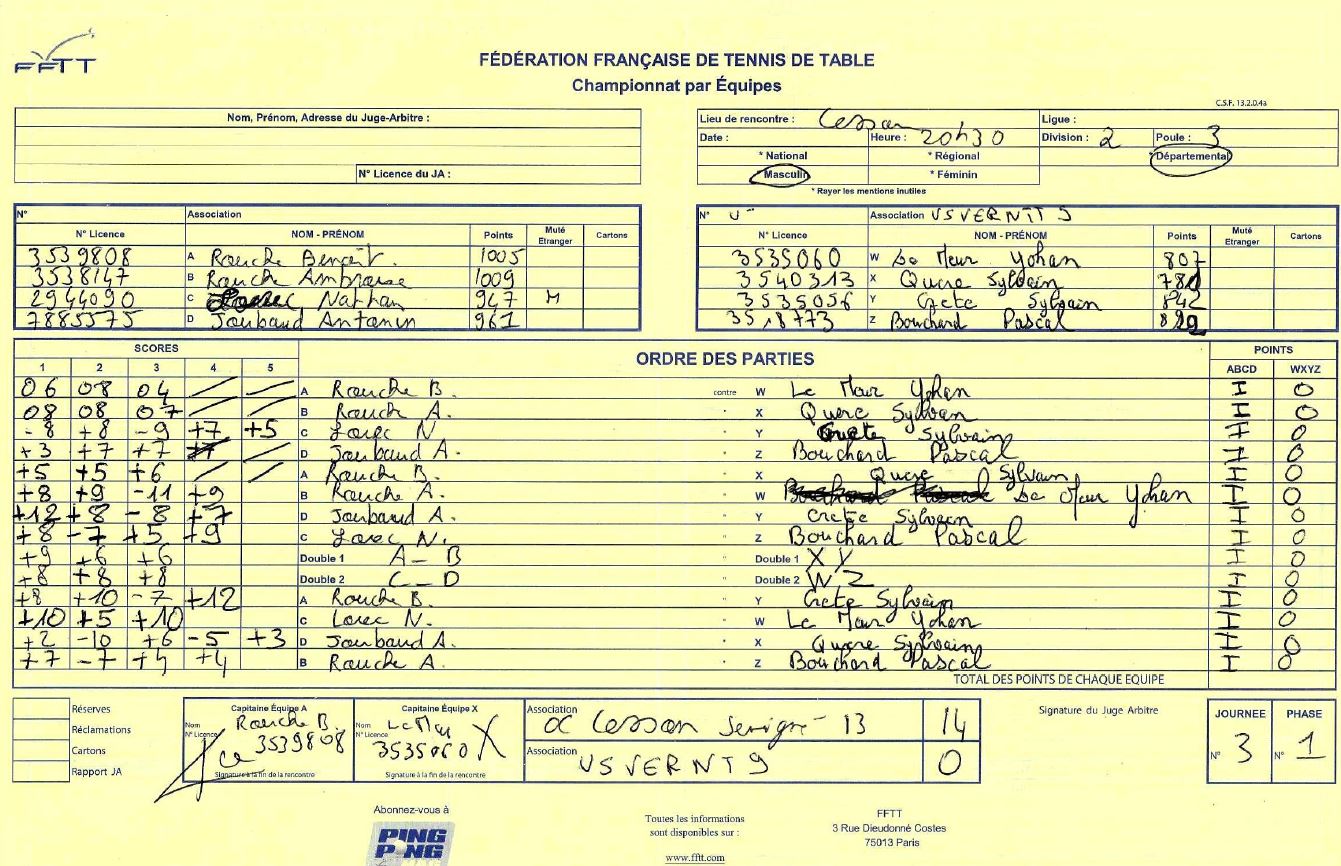 FFTT
FÉDÉRATION FRANÇAISE DE TENNIS DE TABLE
Championnat par Équipes
C.S.F. 13.2.0.4a
Nom, Prénom, Adresse du Juge-Arbitre :
N° Licence du JA :
Lieu de rencontre : Cesson Ligue :
Date : Heure : 20h30 Division : 2 Poule : 3
* National * Régional * Départemental
* Masculin * Féminin
* Rayer les mentions inutiles
N° Association
N° Licence NOM - PRÉNOM Points Muté Etranger Cartons
3539808 A Rouche Benoit 1005
3538147 B Rouche Ambroise 1009
2944090 C Lorec Nathan 947 M
7885575 D Joubaud Antonin 961
N° Association USVERNTT 9
N° Licence NOM - PRÉNOM Points Muté Etranger Cartons
3535060 W Le Meur Yohan 807
3540313 X Quere Sylvain
3535056 Y Crete Sylvain 842
3518773 Z Bouchard Pascal
SCORES ORDRE DES PARTIES POINTS
1 2 3 4 5 ABCD WXYZ
06 08 04 A Rouche B. contre W Le Meur Yohan I 0
08 08 07 B Rouche A. " X Quere Sylvain I 0
-8 +8 -9 +7 +5 C Lorec N " Y Crete Sylvain I 0
+3 +7 +7 D Joubaud A. " Z Bouchard Pascal I 0
+5 +5 +6 A Rouche B. " X Quere Sylvain I 0
+8 +9 -11 +9 B Rouche A. " W Le Meur Yohan I 0
+12 +8 -8 +7 D Joubaud A. " Y Crete Sylvain I 0
+8 -7 +5 +9 C Lorec N. " Z Bouchard Pascal I 0
+9 +6 +6 Double 1 A - B " Double 1 X Y I 0
+8 +8 +8 Double 2 C - D " Double 2 W Z I 0
+8 +10 -7 +12 A Rouche B. " Y Crete Sylvain I 0
+10 +5 +10 C Lorec N. " W Le Meur Yohan I 0
+2 -10 +6 -5 +3 D Joubaud A. " X Quere Sylvain I 0
+7 -7 +4 +4 B Rouche A. " Z Bouchard Pascal I 0
TOTAL DES POINTS DE CHAQUE EQUIPE
Réserves
Réclamations
Cartons
Rapport JA
Capitaine Équipe A
Nom Rouche B.
N° Licence 3539808
Signature à la fin de la rencontre
Capitaine Équipe X
Nom Le Meur
N° Licence 3535060
Signature à la fin de la rencontre
Association OC Cesson Sevigné 13 14
Association USVERNT 9 0
Signature du Juge Arbitre
JOURNEE PHASE
N° 3 N° 1
Abonnez-vous à
PING PONG
Toutes les informations
sont disponibles sur :
www.fftt.com
FFTT
3 Rue Dieudonné Costes
75013 Paris